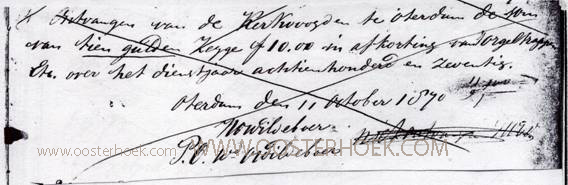 Ontvangen van de Kerkvoogden te Oterdum de som
van tien gulden Zegge ƒ10.00 in afkorting van Orgeltrappen
Etc. over het dienstjaar achtienhonderd en zeventig.
Oterdum den 11 October 1870
Wildeboer
P. C. Wildeboer
www.oosterhoek.com WWW.OOSTERHOEK.COM